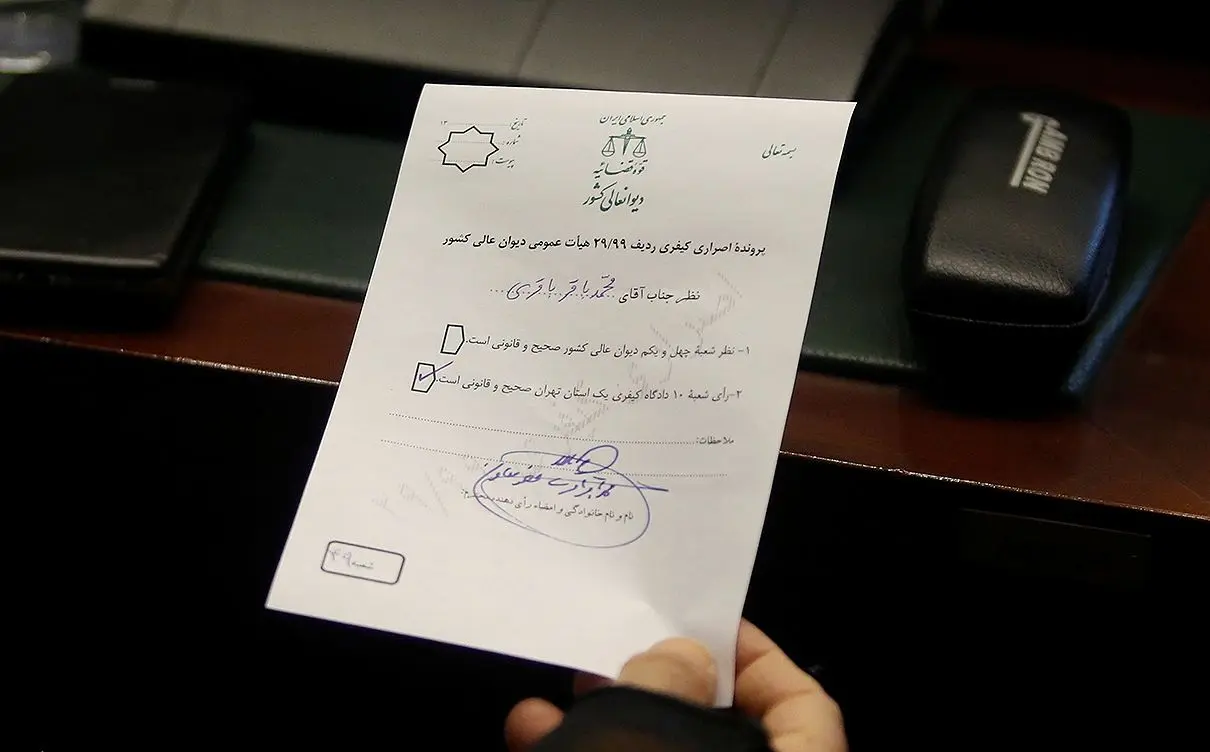 بسمه تعالی
جمهوری اسلامی ایران
قوه قضائیه
دیوانعالی کشور
تاریخ: ۱۳
شماره:
پیوست:
پروندهٔ اصراری کیفری ردیف ۲۹/۹۹ هیأت عمومی دیوان عالی کشور
نظر جناب آقای محمد باقر باقری
۱- نظر شعبهٔ چهل و یکم دیوان عالی کشور صحیح و قانونی است.
۲-رأی شعبهٔ ۱۰ دادگاه کیفری یک استان تهران صحیح و قانونی است.
ملاحظات:
نام و نام خانوادگی و امضاء رأی دهنده
شعبه ۴۹